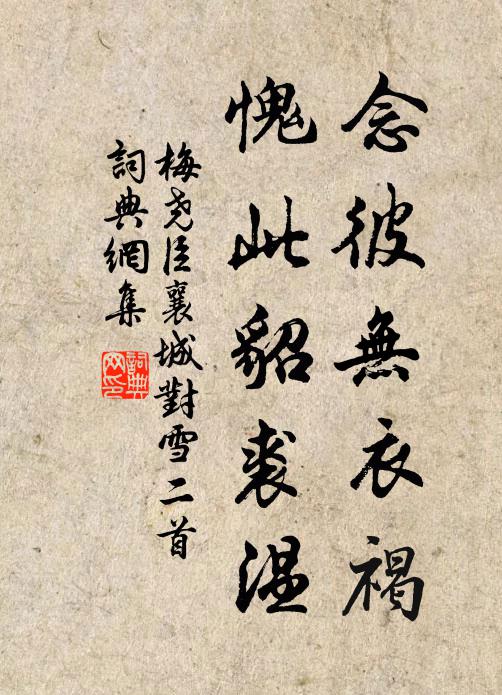 念彼無衣褐
愧此貂裘温
梅尧臣襄城對雪二首
詞典網集
詞典網印